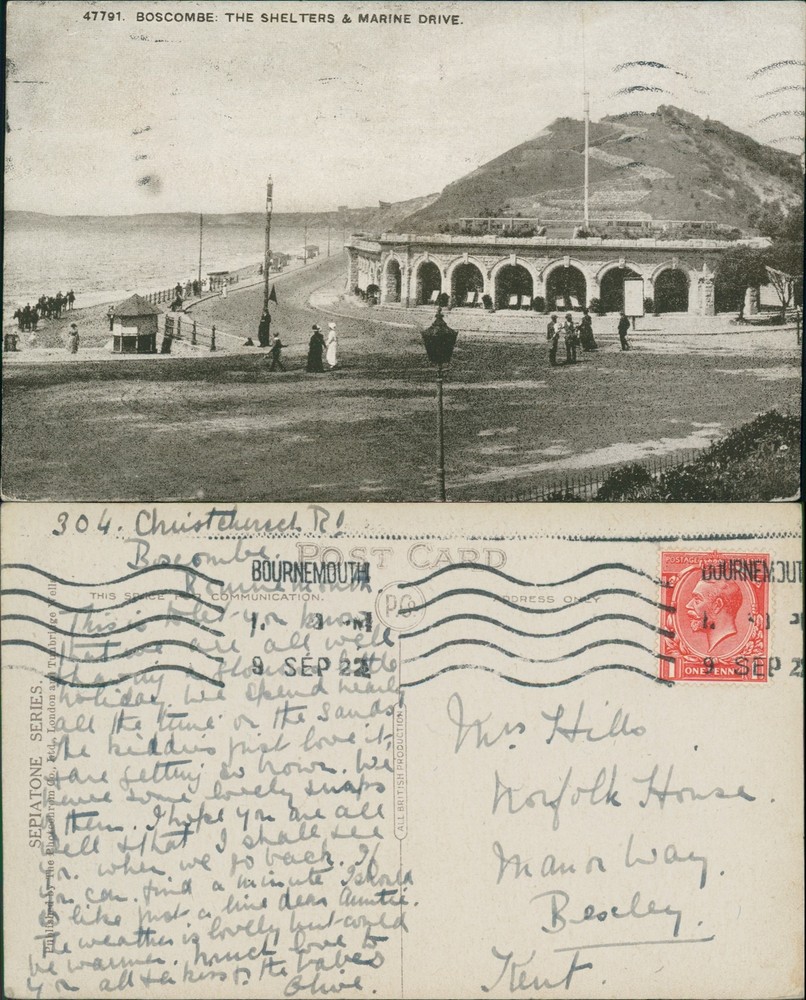 47791. BOSCOMBE: THE SHELTERS & MARINE DRIVE.
304. Christchurch Rd
Boscombe.
Bournemouth
POST CARD
THIS SPACE FOR COMMUNICATION.
ADDRESS ONLY
P.C.
BOURNEMOUTH
9 SEP 22
BOURNEMOUT
9 SEP 2
POSTAGE
ONE PENNY
This is to let you know
that we are all well
& having a glorious little
holiday. We spend nearly
all the time on the sands
The kiddies just love it,
& are getting so brown. We
have some lovely snaps
of them. I hope you are all
well & that I shall see
you when we go back. If
you can find a minute I should
so like just a line dear Auntie.
The weather is lovely but could
be warmer. Much love to
you all & kiss to the babes
Olive.
SEPIATONE SERIES.
Published by The Photochrom Co. Ltd., London and Tunbridge Wells
ALL BRITISH PRODUCTION
Mrs Hills
Norfolk House.
Manor Way.
Bexley.
Kent.